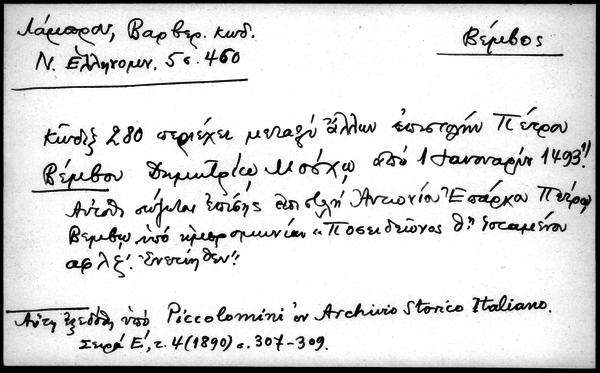 Λάμπρου, Βαρβερ. κωδ.
Ν. Ἑλληνομν. 5 σ. 460
Βέμβος
Κῶδιξ 280 περιέχει μεταξὺ ἄλλων ἐπιστολὴν Πέτρου
Βέμβου Δημητρίῳ Μόσχῳ ἀπὸ 1 Ἰανουαρίου 1493 1)
Αὐτόθι σώζεται ἐπίσης ἐπιστολὴ Ἀντωνίου Ἐπάρχου Πέτρῳ
Βέμβῳ ὑπὸ ἡμερομηνίαν «Ποσειδεῶνος θῃ ἱσταμένου
αφλζ'. Ἐνετίηθεν".
Αὕτη ἐξεδόθη ὑπὸ Piccolomini ἐν Archivio Storico Italiano.
Σειρὰ Ε', τ. 4 (1890) σ. 307-309.